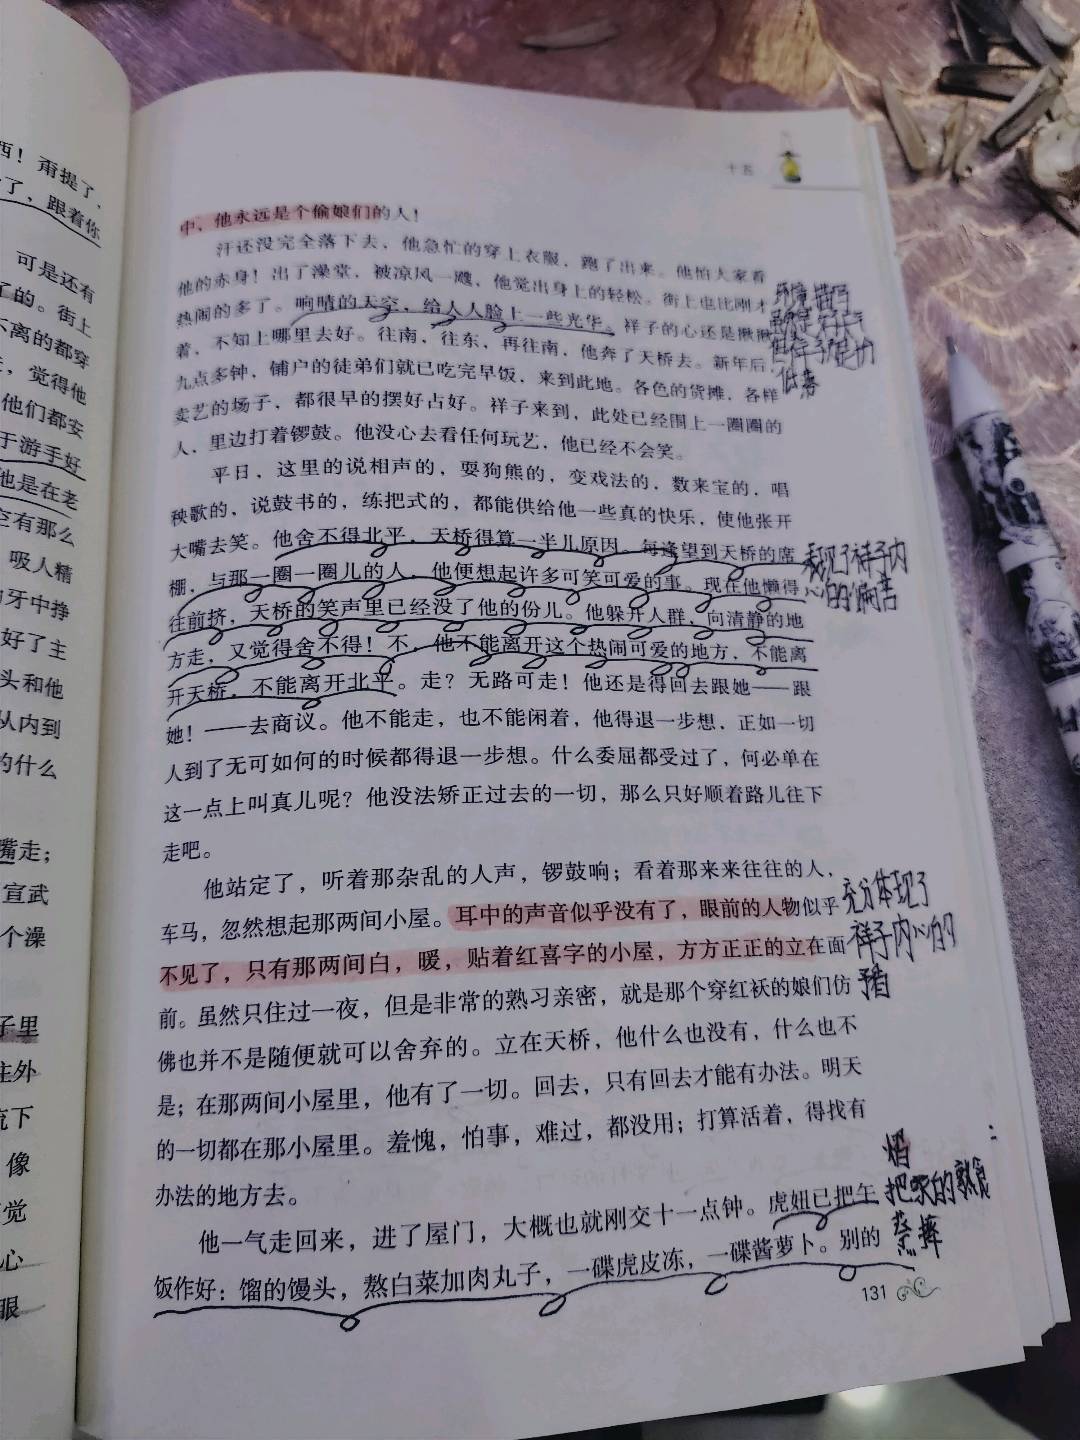 西！甭提了，
了，跟着你
可是还有
了的。街上
不离的都穿
，觉得他
他们都安
于游手好
他是在老
空有那么
吸人精
牙中挣
好了主
头和他
从内到
的什么
嘴走；
宣武
个澡
子里
主外
流下
像
觉
心
眼
十五
中，他永远是个偷娘们的人！
汗还没完全落下去，他急忙的穿上衣服，跑了出来。他怕大家看
他的赤身！出了澡堂，被凉风一飕，他觉出身上的轻松。街上也比刚才
热闹的多了。响晴的天空，给人人脸上一些光华。祥子的心还是揪揪
着，不知上哪里去好。往南，往东，再往南，他奔了天桥去。新年后，
九点多钟，铺户的徒弟们就已吃完早饭，来到此地。各色的货摊，各样
卖艺的场子，都很早的摆好占好。祥子来到，此处已经围上一圈圈的
人，里边打着锣鼓。他没心去看任何玩艺，他已经不会笑。
平日，这里的说相声的，耍狗熊的，变戏法的，数来宝的，唱
秧歌的，说鼓书的，练把式的，都能供给他一些真的快乐，使他张开
大嘴去笑。他舍不得北平，天桥得算一半儿原因。每逢望到天桥的席
棚，与那一圈一圈儿的人，他便想起许多可笑可爱的事。现在他懒得
往前挤，天桥的笑声里已经没了他的份儿。他躲开人群，向清静的地
方走，又觉得舍不得！不，他不能离开这个热闹可爱的地方，不能离
开天桥，不能离开北平。走？无路可走！他还是得回去跟她——跟
她！——去商议。他不能走，也不能闲着，他得退一步想，正如一切
人到了无可如何的时候都得退一步想。什么委屈都受过了，何必单在
这一点上叫真儿呢？他没法矫正过去的一切，那么只好顺着路儿往下
走吧。
他站定了，听着那杂乱的人声，锣鼓响；看着那来来往往的人，
车马，忽然想起那两间小屋。耳中的声音似乎没有了，眼前的人物似乎
不见了，只有那两间白，暖，贴着红喜字的小屋，方方正正的立在面
前。虽然只住过一夜，但是非常的熟习亲密，就是那个穿红袄的娘们仿
佛也并不是随便就可以舍弃的。立在天桥，他什么也没有，什么也不
是；在那两间小屋里，他有了一切。回去，只有回去才能有办法。明天
的一切都在那小屋里。羞愧，怕事，难过，都没用；打算活着，得找有
办法的地方去。
他一气走回来，进了屋门，大概也就刚交十一点钟。虎妞已把午
饭作好：馏的馒头，熬白菜加肉丸子，一碟虎皮冻，一碟酱萝卜。别的
131
环境描写
好天气
但祥子是
低落
表现了祥子内
心的
充分体现了
祥子内心的
馏
把
的熟食
蒸